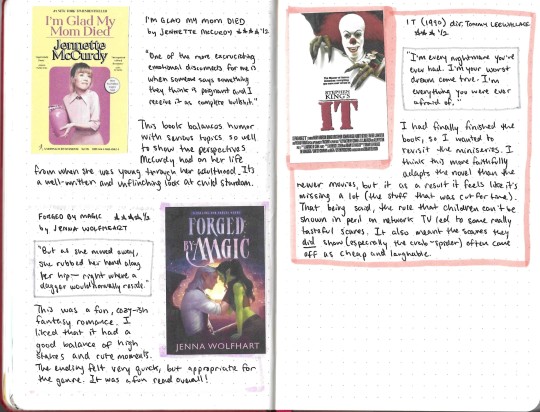 #1 NEW YORK TIMES BESTSELLER
I'm Glad My
Mom Died
Jennette
McCurdy
I'M GLAD MY MOM DIED
by JENNETTE McCURDY ★★★★ 1/2
"One of the more excruciating
emotional disconnects for me is
when someone says something
they think is poignant and I
receive it as complete bullshit."
This book balances humor
with serious topics so well
to show the perspectives
McCurdy had on her life
from when she was young through her adulthood. It's
a well-written and unflinching look at child stardom.
FORGED BY MAGIC ★★★★ 1/2
by JENNA WOLFHART
"But as she moved away,
she rubbed her hand along
her hip— right where a
dagger would normally reside."
FORGED
BY MAGIC
JENNA WOLFHART
This was a fun, cozy-ish
fantasy romance. I
liked that it had a
good balance of high
stakes and cute moments.
The ending felt very quick, but appropriate for
the genre. It was a fun read overall!
STEPHEN
KING'S
IT
IT (1990) dir. TOMMY LEE WALLACE
★★★ 1/2
"I'm every nightmare you've
ever had. I'm your worst
dream come true. I'm
everything you were ever
afraid of."
I had finally finished the
book, so I wanted to
revisit the miniseries. I
think this more faithfully
adapts the novel than the
newer movies, but it as a result it feels like it's
missing a lot (the stuff that was cut for time).
That being said, the rule that children can't be
shown in peril on network TV led to some really
tasteful scares. It also meant the scares they
did show (especially the crab-spider) often came
off as cheap and laughable.